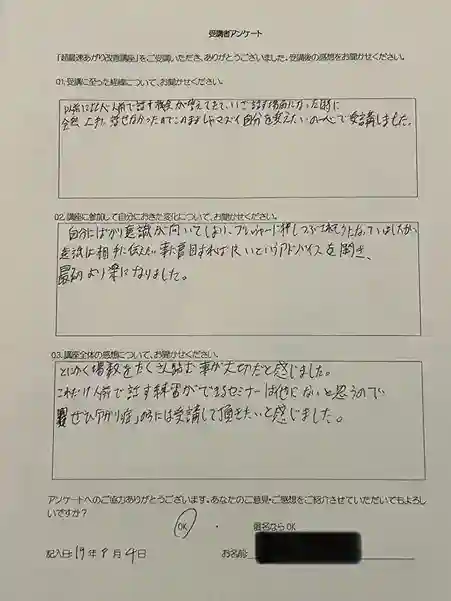 受講者アンケート
「超最速あがり改善講座」をご受講いただき、ありがとうございました。受講後の感想をお聞かせください。
01.受講に至った経緯について、お聞かせください。
以前に比べ人前で話す機会が増えてきて、いざ話す場面になった時に
全然上手く話せなかったのでこのままじゃマズイ自分を変えたいの一心で受講しました。
02.講座に参加して自分におきた変化について、お聞かせください。
自分にばかり意識が向いてしまい、プレッシャーに押しつぶされそうになっていましたが、
意識は相手に伝える事に着目すれば良いというアドバイスを聞き、
最初より楽になりました。
03.講座全体の感想について、お聞かせください。
とにかく場数をたくさん踏む事が大切だと感じました。
これだけ人前で話す練習ができるセミナーは他にないと思うので
ぜひ「あがり症」の方には受講して頂きたいと感じました。
アンケートへのご協力ありがとうございます。あなたのご意見・ご感想をご紹介させていただいてもよろし
いですか?
OK ・ 匿名なら OK
記入日: 19年 9月 4日 お名前: